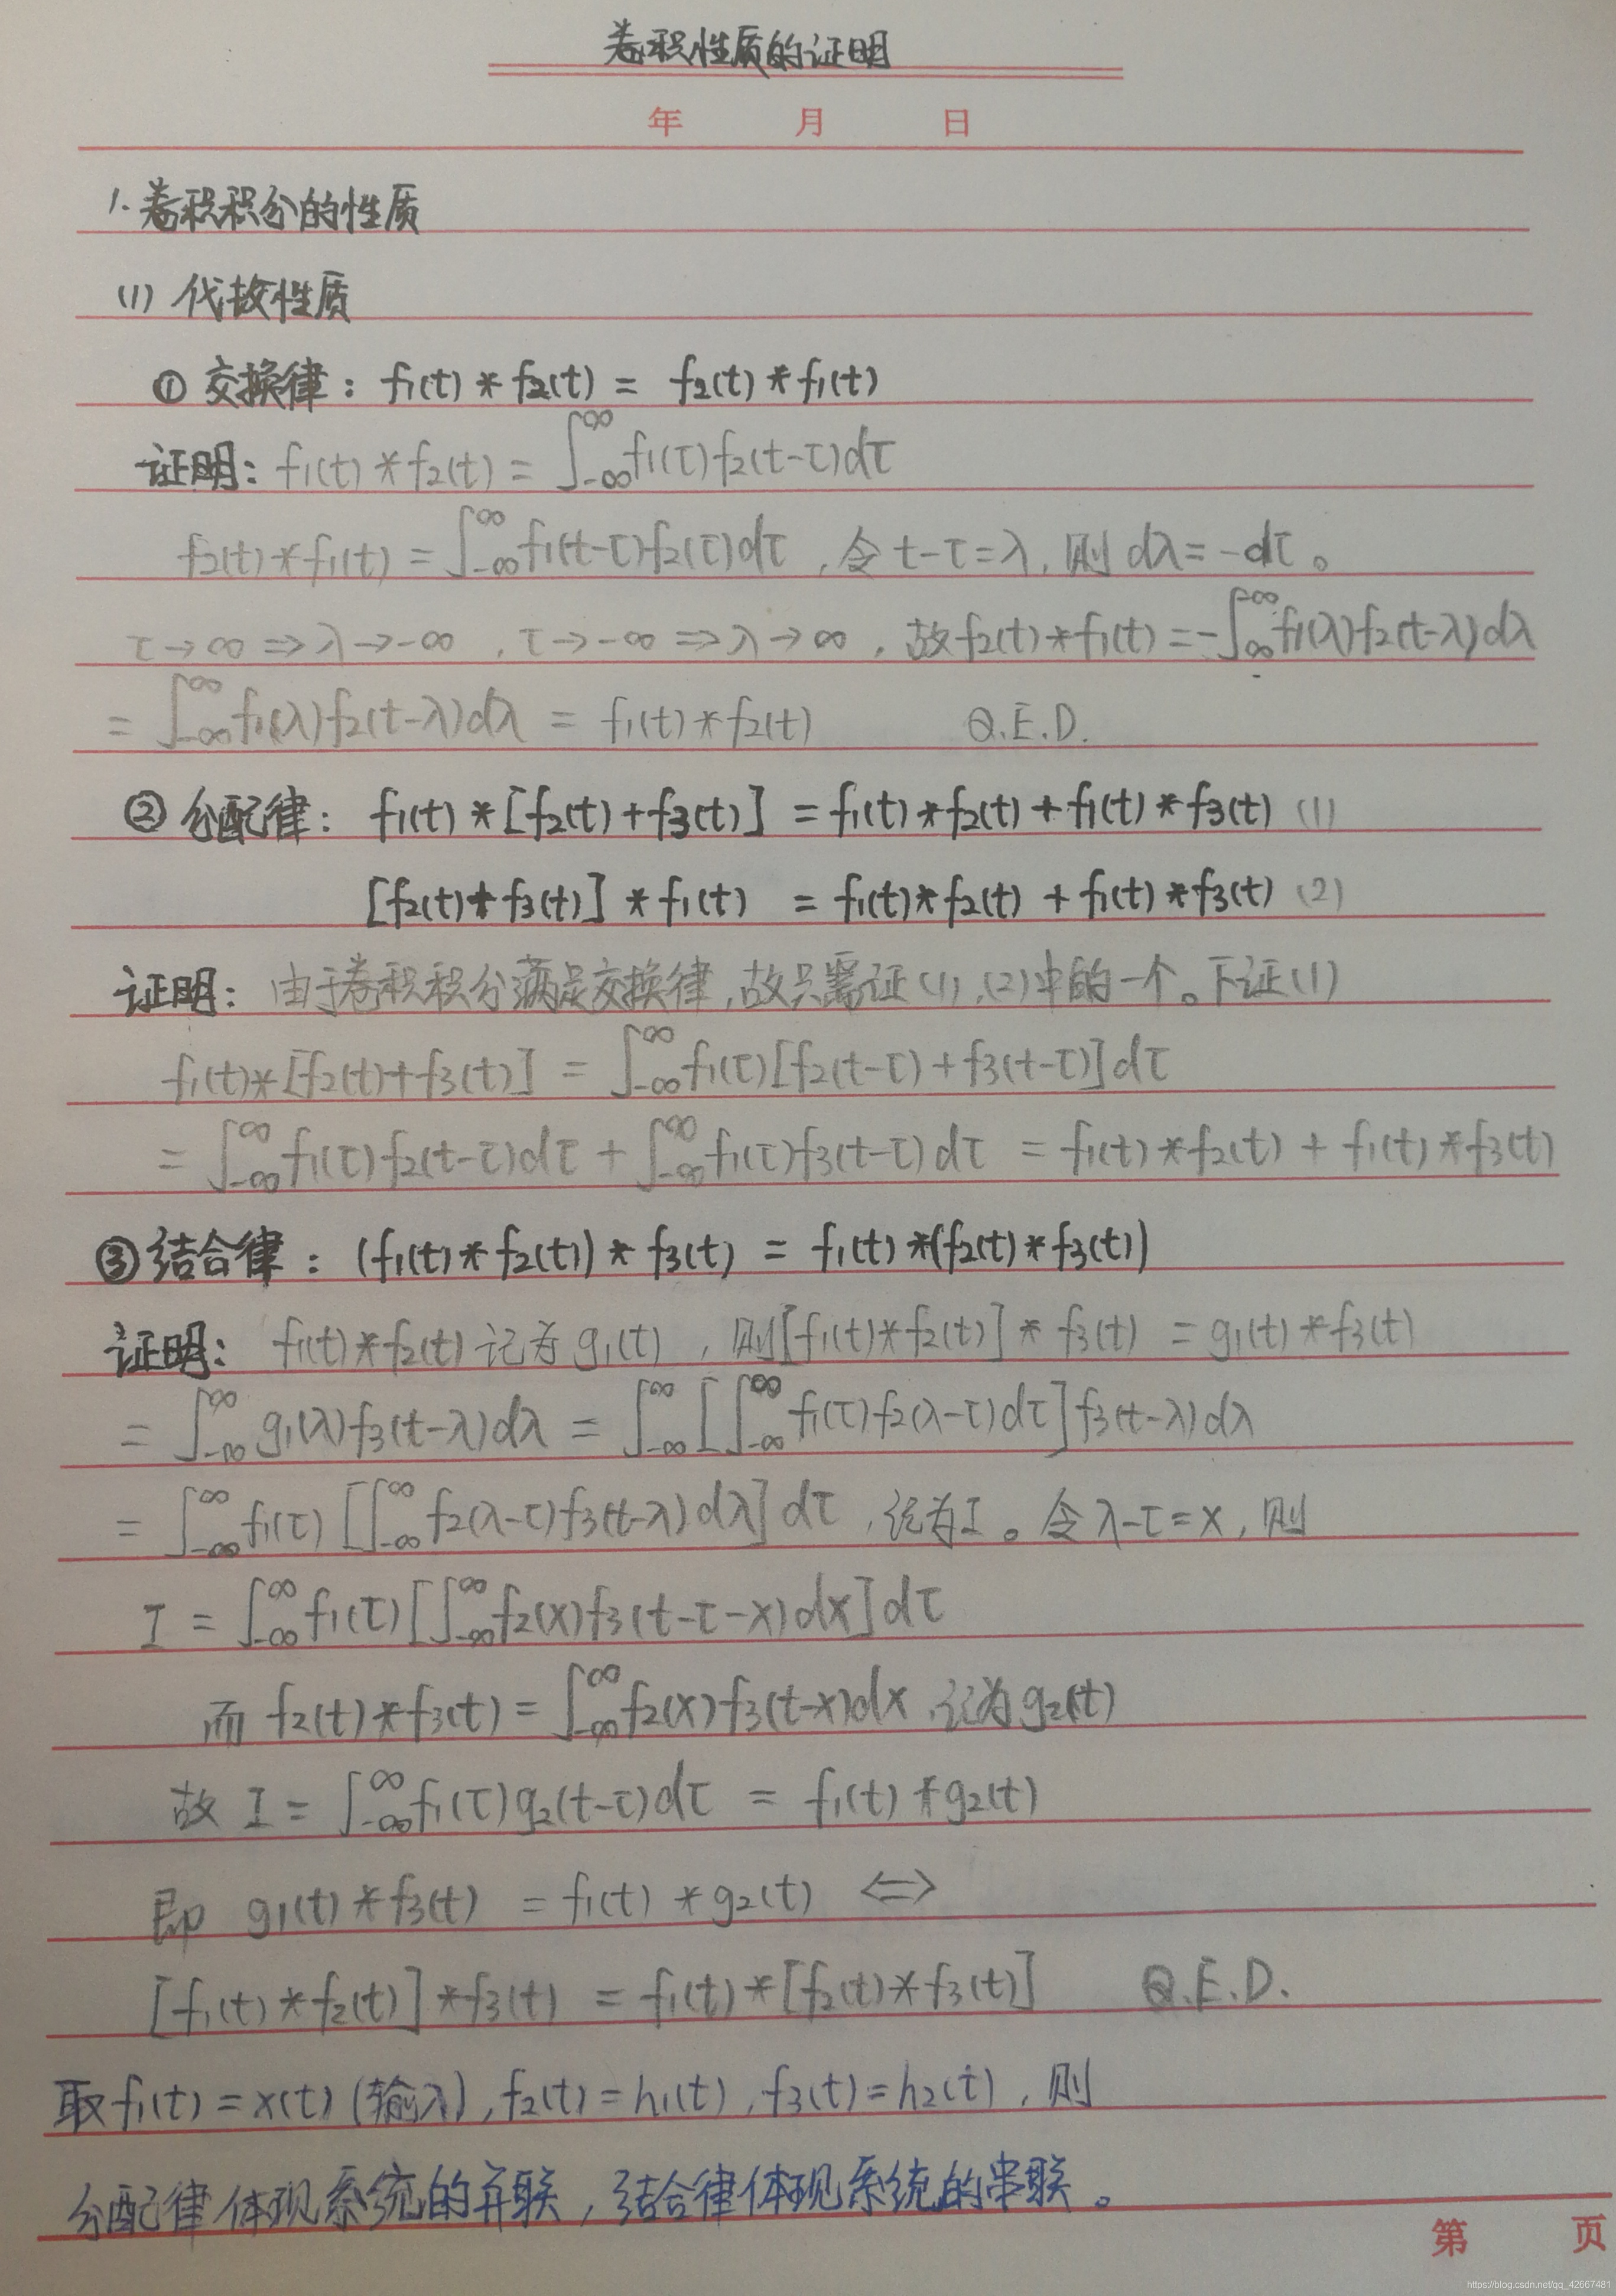 卷积性质的证明
年 月 日
1. 卷积积分的性质
(1) 代数性质
① 交换律: f₁(t) * f₂(t) = f₂(t) * f₁(t)
证明: f₁(t) * f₂(t) = ∫_{-∞}^{∞} f₁(τ) f₂(t-τ) dτ
f₂(t) * f₁(t) = ∫_{-∞}^{∞} f₁(t-τ) f₂(τ) dτ , 令 t-τ=λ, 则 dλ=-dτ。
τ→∞ ⇒ λ→-∞ , τ→-∞ ⇒ λ→∞ , 故 f₂(t) * f₁(t) = -∫_{∞}^{-∞} f₁(λ) f₂(t-λ) dλ
= ∫_{-∞}^{∞} f₁(λ) f₂(t-λ) dλ = f₁(t) * f₂(t) Q.E.D.
② 分配律: f₁(t) * [f₂(t) + f₃(t)] = f₁(t) * f₂(t) + f₁(t) * f₃(t) (1)
[f₂(t) + f₃(t)] * f₁(t) = f₁(t) * f₂(t) + f₁(t) * f₃(t) (2)
证明: 由于卷积积分满足交换律, 故只需证(1),(2)中的一个。下证(1)
f₁(t) * [f₂(t) + f₃(t)] = ∫_{-∞}^{∞} f₁(τ) [f₂(t-τ) + f₃(t-τ)] dτ
= ∫_{-∞}^{∞} f₁(τ) f₂(t-τ) dτ + ∫_{-∞}^{∞} f₁(τ) f₃(t-τ) dτ = f₁(t) * f₂(t) + f₁(t) * f₃(t)
③ 结合律: (f₁(t) * f₂(t)) * f₃(t) = f₁(t) * (f₂(t) * f₃(t))
证明: f₁(t) * f₂(t) 记为 g₁(t) , 则 [f₁(t) * f₂(t)] * f₃(t) = g₁(t) * f₃(t)
= ∫_{-∞}^{∞} g₁(λ) f₃(t-λ) dλ = ∫_{-∞}^{∞} [∫_{-∞}^{∞} f₁(τ) f₂(λ-τ) dτ] f₃(t-λ) dλ
= ∫_{-∞}^{∞} f₁(τ) [∫_{-∞}^{∞} f₂(λ-τ) f₃(t-λ) dλ] dτ , 记为 I。令 λ-τ=x, 则
I = ∫_{-∞}^{∞} f₁(τ) [∫_{-∞}^{∞} f₂(x) f₃(t-τ-x) dx] dτ
而 f₂(t) * f₃(t) = ∫_{-∞}^{∞} f₂(x) f₃(t-x) dx , 记为 g₂(t)
故 I = ∫_{-∞}^{∞} f₁(τ) g₂(t-τ) dτ = f₁(t) * g₂(t)
即 g₁(t) * f₃(t) = f₁(t) * g₂(t) ⇔
[f₁(t) * f₂(t)] * f₃(t) = f₁(t) * [f₂(t) * f₃(t)] Q.E.D.
取 f₁(t) = x(t) (输入), f₂(t) = h₁(t), f₃(t) = h₂(t), 则
分配律体现系统的并联, 结合律体现系统的串联。
第 页
https://blog.csdn.net/qq_42667481